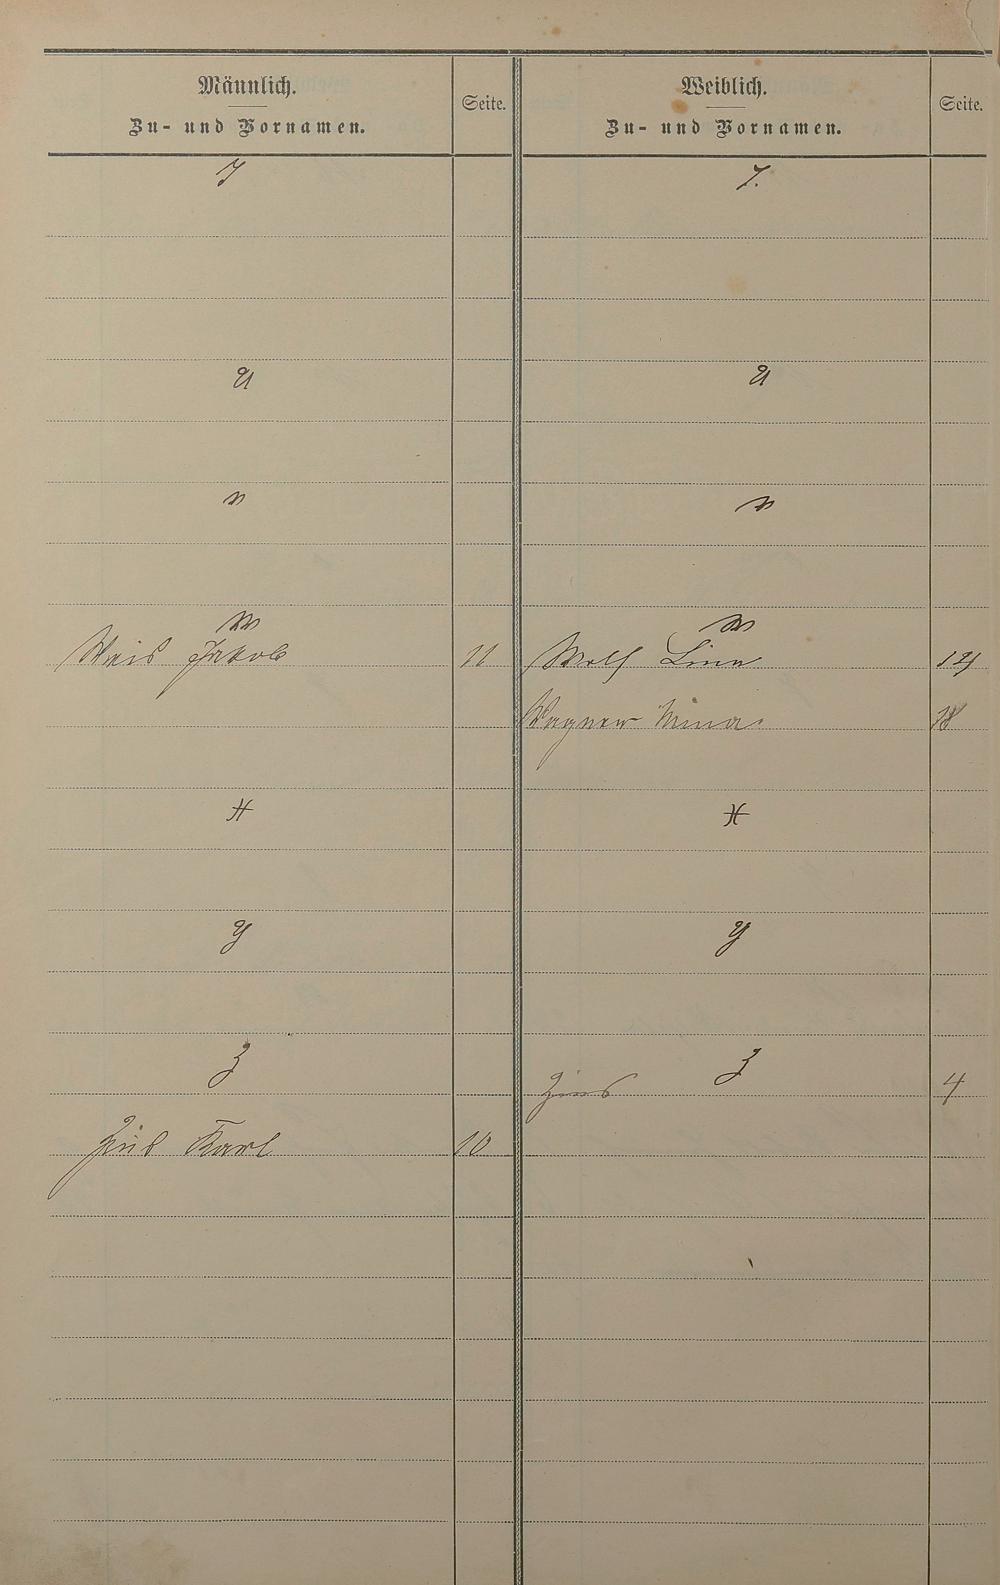 Männlich. Seite. Weiblich. Seite.
Zu- und Vornamen. Zu- und Vornamen.
T T.
U U
V V
W W
Weis Jakob 11 Wolf Lina 14
Wagner Mina 18
X X
Y Y
Z Z
4
Karl 10